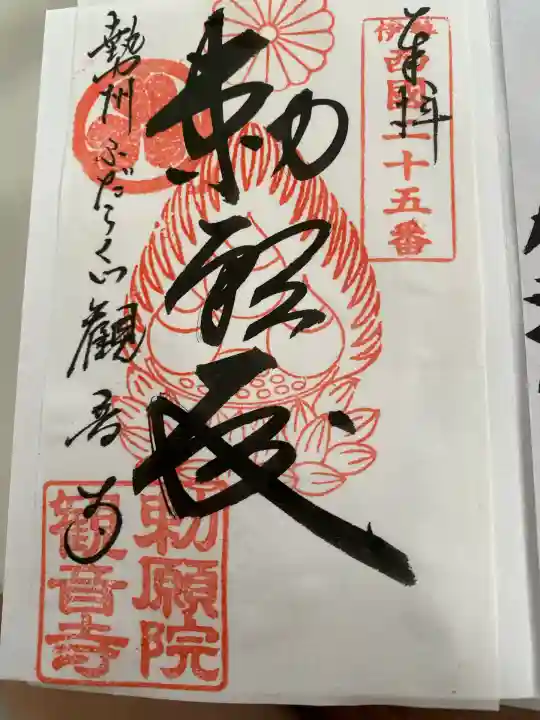 奉拝
伊勢
西国二十五番
勅願殿
勢州ふだらくい觀音寺
勅願院
観音寺